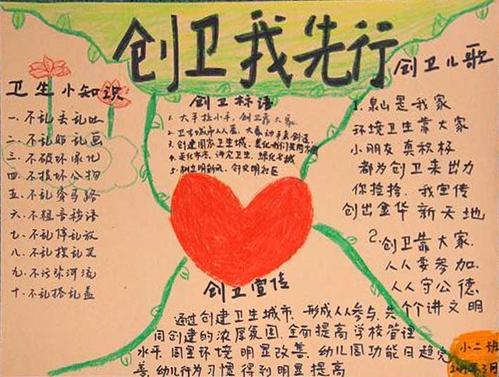 创卫我先行
卫生小知识
一．不乱丢乱吐
二．不乱贴乱画
三．不破坏绿化
四．不损坏公物
五．不乱穿马路
六．不粗言秽语
七．不乱停乱放
八．不乱搭乱叉
九．不污染河流
十．不乱搭乱盖
创卫标语
1. 大手拉小手，创卫靠大家
2. 卫生城市人人爱，大家动手来创造
3. 创建国家卫生城，
4. 美化市容，讲究卫生，绿化
5. 创文明社区
创卫儿歌
1. 泉山是我家
环境卫生靠大家
小朋友真积极
都为创卫来出力
你控诉，我宣传
创出金华新天地
2. 创卫靠大家
人人要参加
人人守公德
个个讲文明
创卫宣传
通过创建卫生城市，形成人人参与，共
同创建的浓厚氛围，全面提高学校管理
水平，周围环境明显改善，幼儿园功能日趋完
善，幼儿行为习惯得到明显提高
小二班
3月